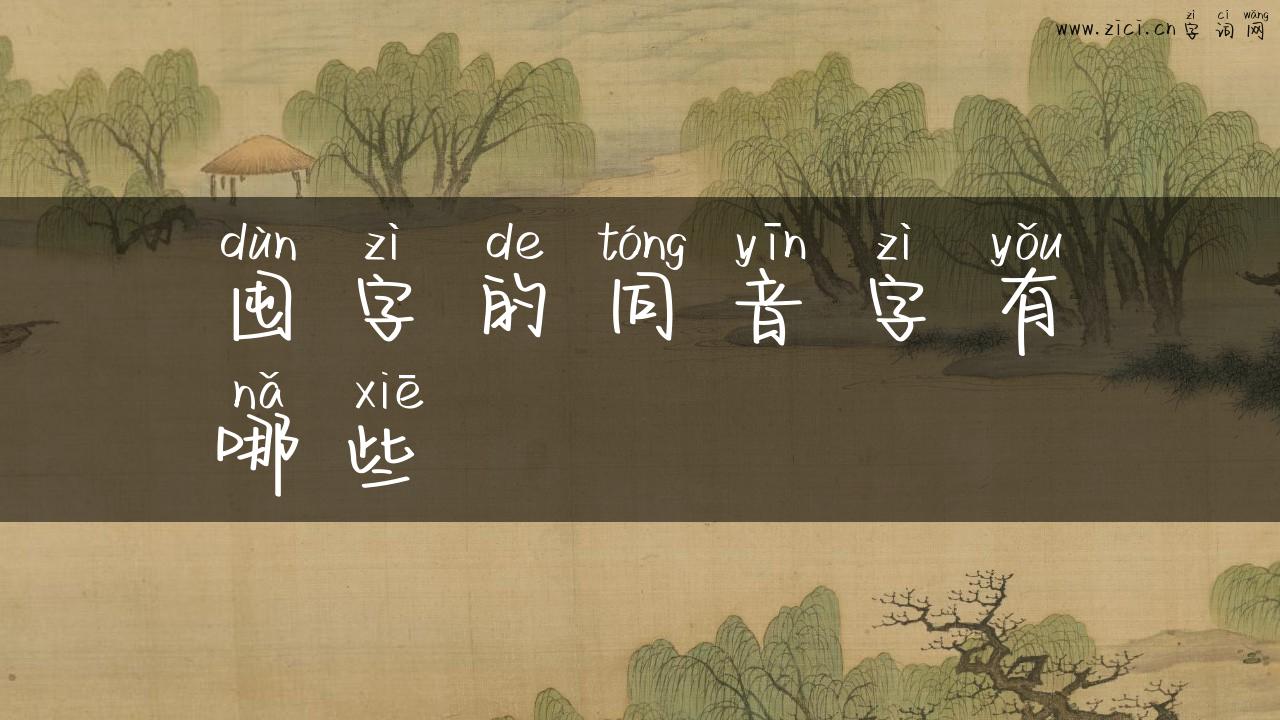 zì cí wǎng
www.zici.cn 字 词 网
dùn zì de tóng yīn zì yǒu
囤 字 的 同 音 字 有
nǎ xiē
哪 些